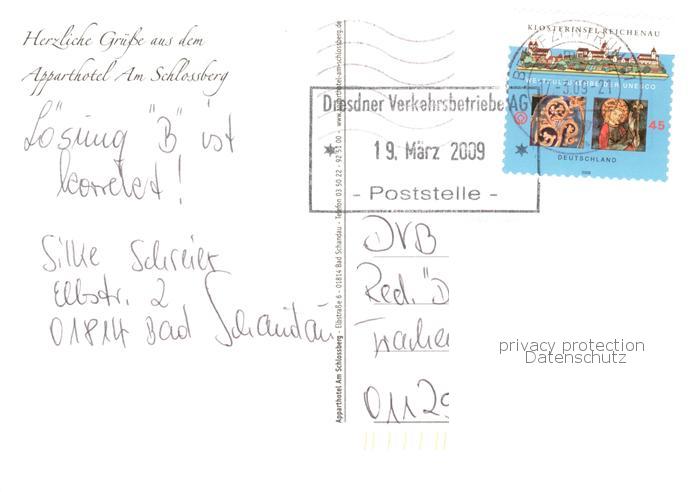 Herzliche Grüße aus dem
Apparthotel Am Schlossberg
Lösung "B" ist
korrekt!
Silke Schreier
Elbstr. 2
01814 Bad Schandau
Apparthotel Am Schlossberg - Elbstraße 6 - 01814 Bad Schandau - Telefon 03 50 22 - 92 51 00 - www.apparthotel-am-schlossberg.de
Dresdner Verkehrsbetriebe AG
19. März 2009
- Poststelle -
KLOSTERINSEL REICHENAU
WELTKULTURERBE DER UNESCO
45
DEUTSCHLAND
2008
DVB
Red. "D
Trache
0112
privacy protection
Datenschutz